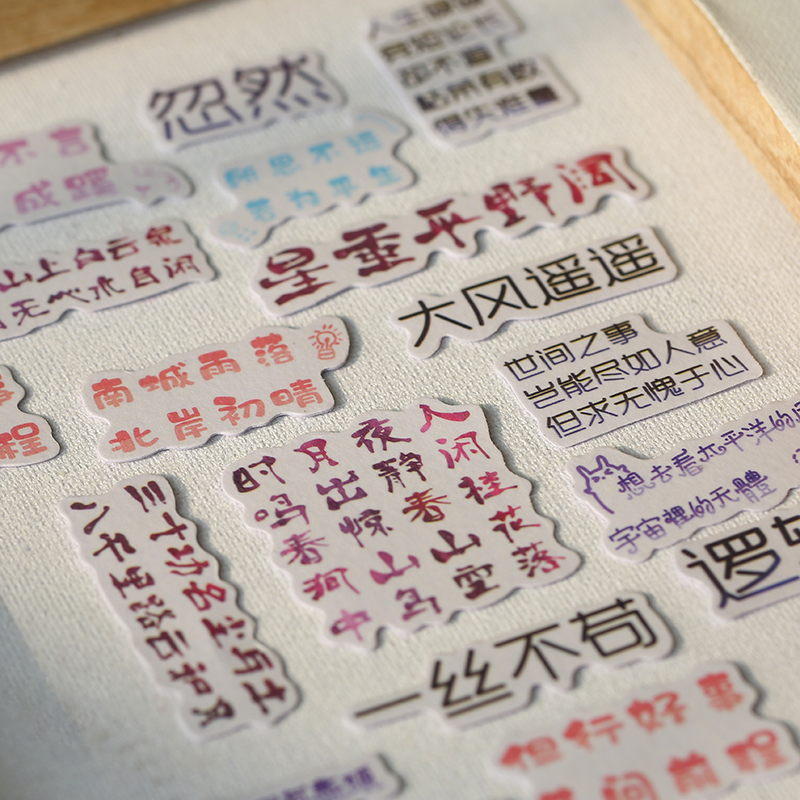 忽然
人生
得失难量
不言
成蹊
所思不遇
若为平生
星垂平野阔
山上白云泉
无心水自闲
大风遥遥
世间之事
岂能尽如人意
但求无愧于心
南城雨落
北岸初晴
程
人闲桂花落
夜静春山空
月出惊山鸟
时鸣春涧中
想去看太平洋的
宇宙裡的天體
逻
三十功名尘与土
八千里路云和月
一丝不苟
但行好事
莫问前程